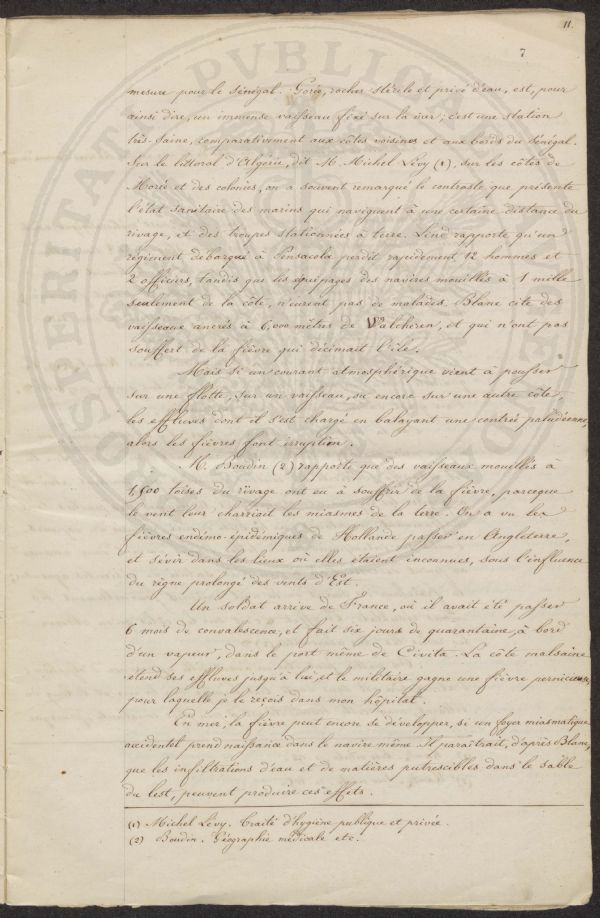 11.
7
mesure pour le Sénégal. Gorée, rocher stérile et privé d'eau, est, pour
ainsi dire, un immense vaisseau fixé sur la mer; c'est une station
très-saine, comparativement aux côtes voisines et aux bords du Sénégal.
Sur le littoral d'Algérie, dit M. Michel Lévy (1), sur les côtes de
Morée et des colonies, on a souvent remarqué le contraste que présente
l'état sanitaire des marins qui naviguent à une certaine distance du
rivage, et des troupes stationnées à terre. Lind rapporte qu'un
régiment débarqué à Pensacola perdit rapidement 12 hommes et
2 officiers, tandis que les équipages des navires mouillés à 1 mille
seulement de la côte, n'eurent pas de malades. Blane cite des
vaisseaux ancrés à 6,000 mètres de Walcheren, et qui n'ont pas
souffert de la fièvre qui décimait l'île.
Mais si un courant atmosphérique vient à pousser
sur une flotte, sur un vaisseau, ou encore sur une autre côte,
les effluves dont il s'est chargé en balayant une contrée paludéenne,
alors les fièvres font irruption.
M. Boudin (2) rapporte que des vaisseaux mouillés à
1,500 toises du rivage ont eu à souffrir de la fièvre, parceque
le vent leur charriait les miasmes de la terre. On a vu les
fièvres endémo-épidémiques de Hollande passer en Angleterre,
et sévir dans les lieux où elles étaient inconnues, sous l'influence
du règne prolongé des vents d'Est.
Un soldat arrive de France, où il avait été passer
6 mois de convalescence, et fait six jours de quarantaine, à bord
d'un vapeur, dans le port même de Civita. La côte malsaine
étend ses effluves jusqu'à lui, et le militaire gagne une fièvre pernicieuse,
pour laquelle je le reçois dans mon hôpital.
En mer, la fièvre peut encore se développer, si un foyer miasmatique
accidentel prend naissance dans le navire même. Il paraîtrait, d'après Blane,
que les infiltrations d'eau et de matières putrescibles dans le sable
du lest, peuvent produire ces effets.
(1) Michel Lévy. Traité d'hygiène publique et privée.
(2) Boudin. Géographie médicale etc.